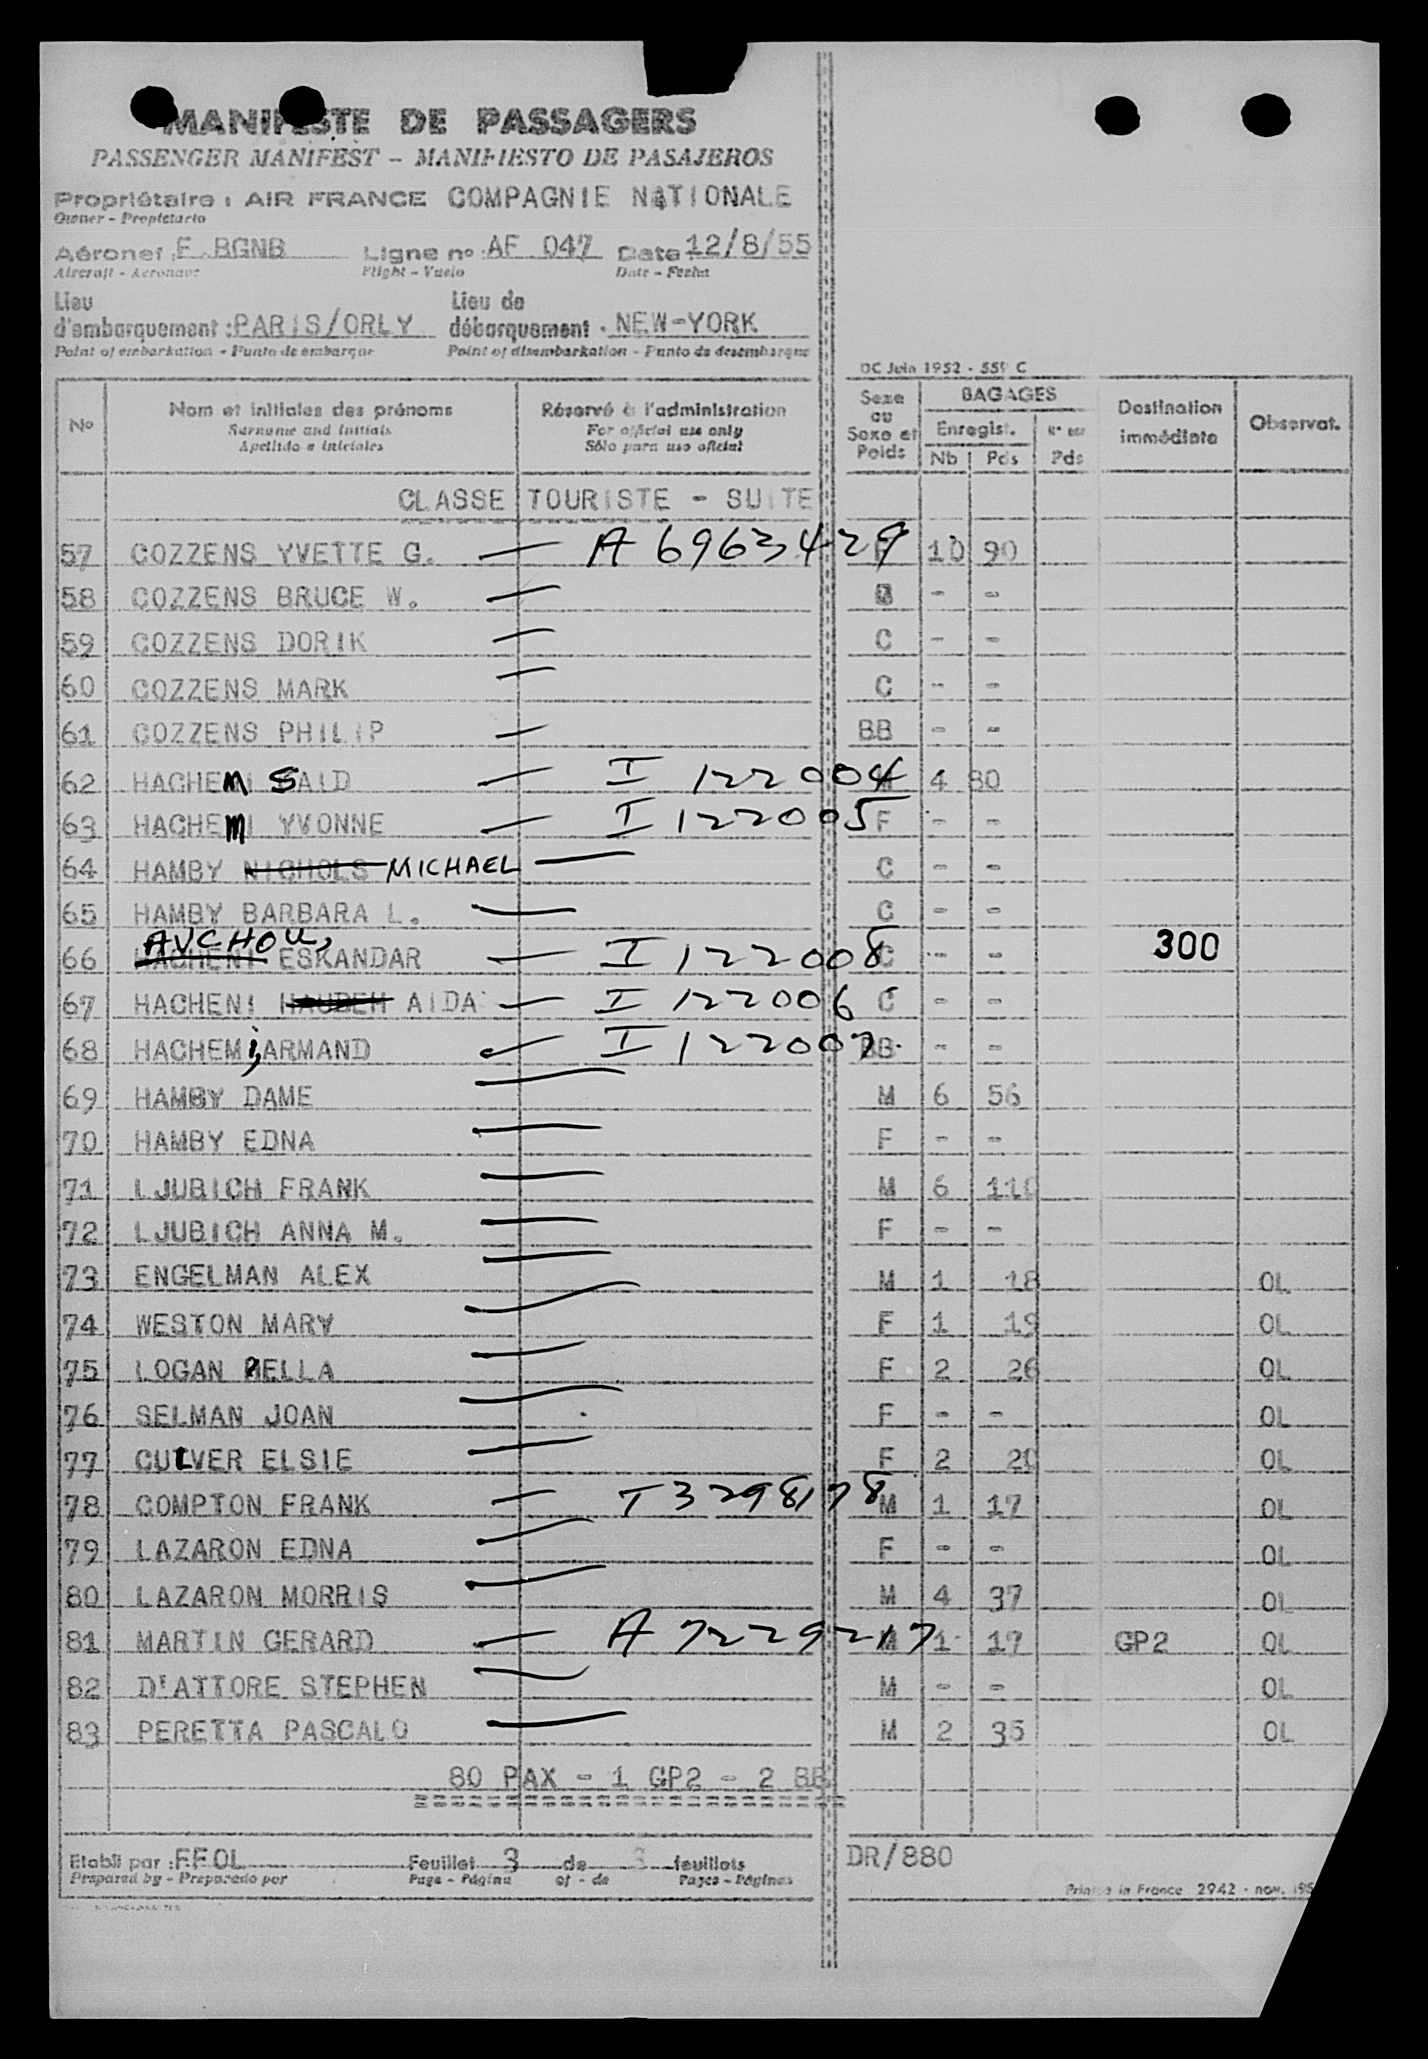 MANIFESTE DE PASSAGERS
PASSENGER MANIFEST – MANIFIESTO DE PASAJEROS
Propriétaire : AIR FRANCE COMPAGNIE NATIONALE
Owner – Propietario
Aéronef : F.BGNB Ligne no AF 047 Date 12/8/55
Aircraft – Aeronave Flight – Vuelo Date – Fecha
Lieu d'embarquement : PARIS/ORLY Lieu de débarquement . NEW-YORK
Point of embarkation – Punto de embarque Point of disembarkation – Punto de desembarque
DC Juin 1952 - 559 C
No Nom et initiales des prénoms Réservé à l'administration Sexe ou Sexe et Poids BAGAGES Destination immédiate Observat.
Surname and initials For official use only Enregist.
Apellido e iniciales Sólo para uso oficial Nb Pds Pds
CLASSE TOURISTE - SUITE
57 COZZENS YVETTE G. — A 6963429 F 10 90
58 COZZENS BRUCE W. — - -
59 COZZENS DORIK — C - -
60 COZZENS MARK — C - -
61 COZZENS PHILIP — BB - -
62 HACHEMI SAID — I 122004 M 4 80
63 HACHEMI YVONNE — I 122005 F - -
64 HAMBY NICHOLS MICHAEL — C - -
65 HAMBY BARBARA L. — C - -
AVCHOU,
66 HACHENI ESKANDAR — I 122008 C - - 300
67 HACHENI HAUDEH AIDA — I 122006 C - -
68 HACHEMi, ARMAND — I 122007 BB - -
69 HAMBY DAME — M 6 56
70 HAMBY EDNA — F - -
71 LJUBICH FRANK — M 6 110
72 LJUBICH ANNA M. — F - -
73 ENGELMAN ALEX — M 1 18 OL
74 WESTON MARY — F 1 19 OL
75 LOGAN BELLA — F 2 26 OL
76 SELMAN JOAN — F - - OL
77 CULVER ELSIE — F 2 20 OL
78 COMPTON FRANK — T 3298178 M 1 17 OL
79 LAZARON EDNA — F - - OL
80 LAZARON MORRIS — M 4 37 OL
81 MARTIN GERARD — A 7229217 M 1 17 GP2 OL
82 D'ATTORE STEPHEN — M - - OL
83 PERETTA PASCALO — M 2 35 OL
80 PAX - 1 GP2 - 2 BB
Etabli par : FFOL Feuillet 3 de 3 feuillets DR/880
Prepared by – Preparado por Page – Página of – de Pages – Páginas
Printed in France 2942 - nov. 195